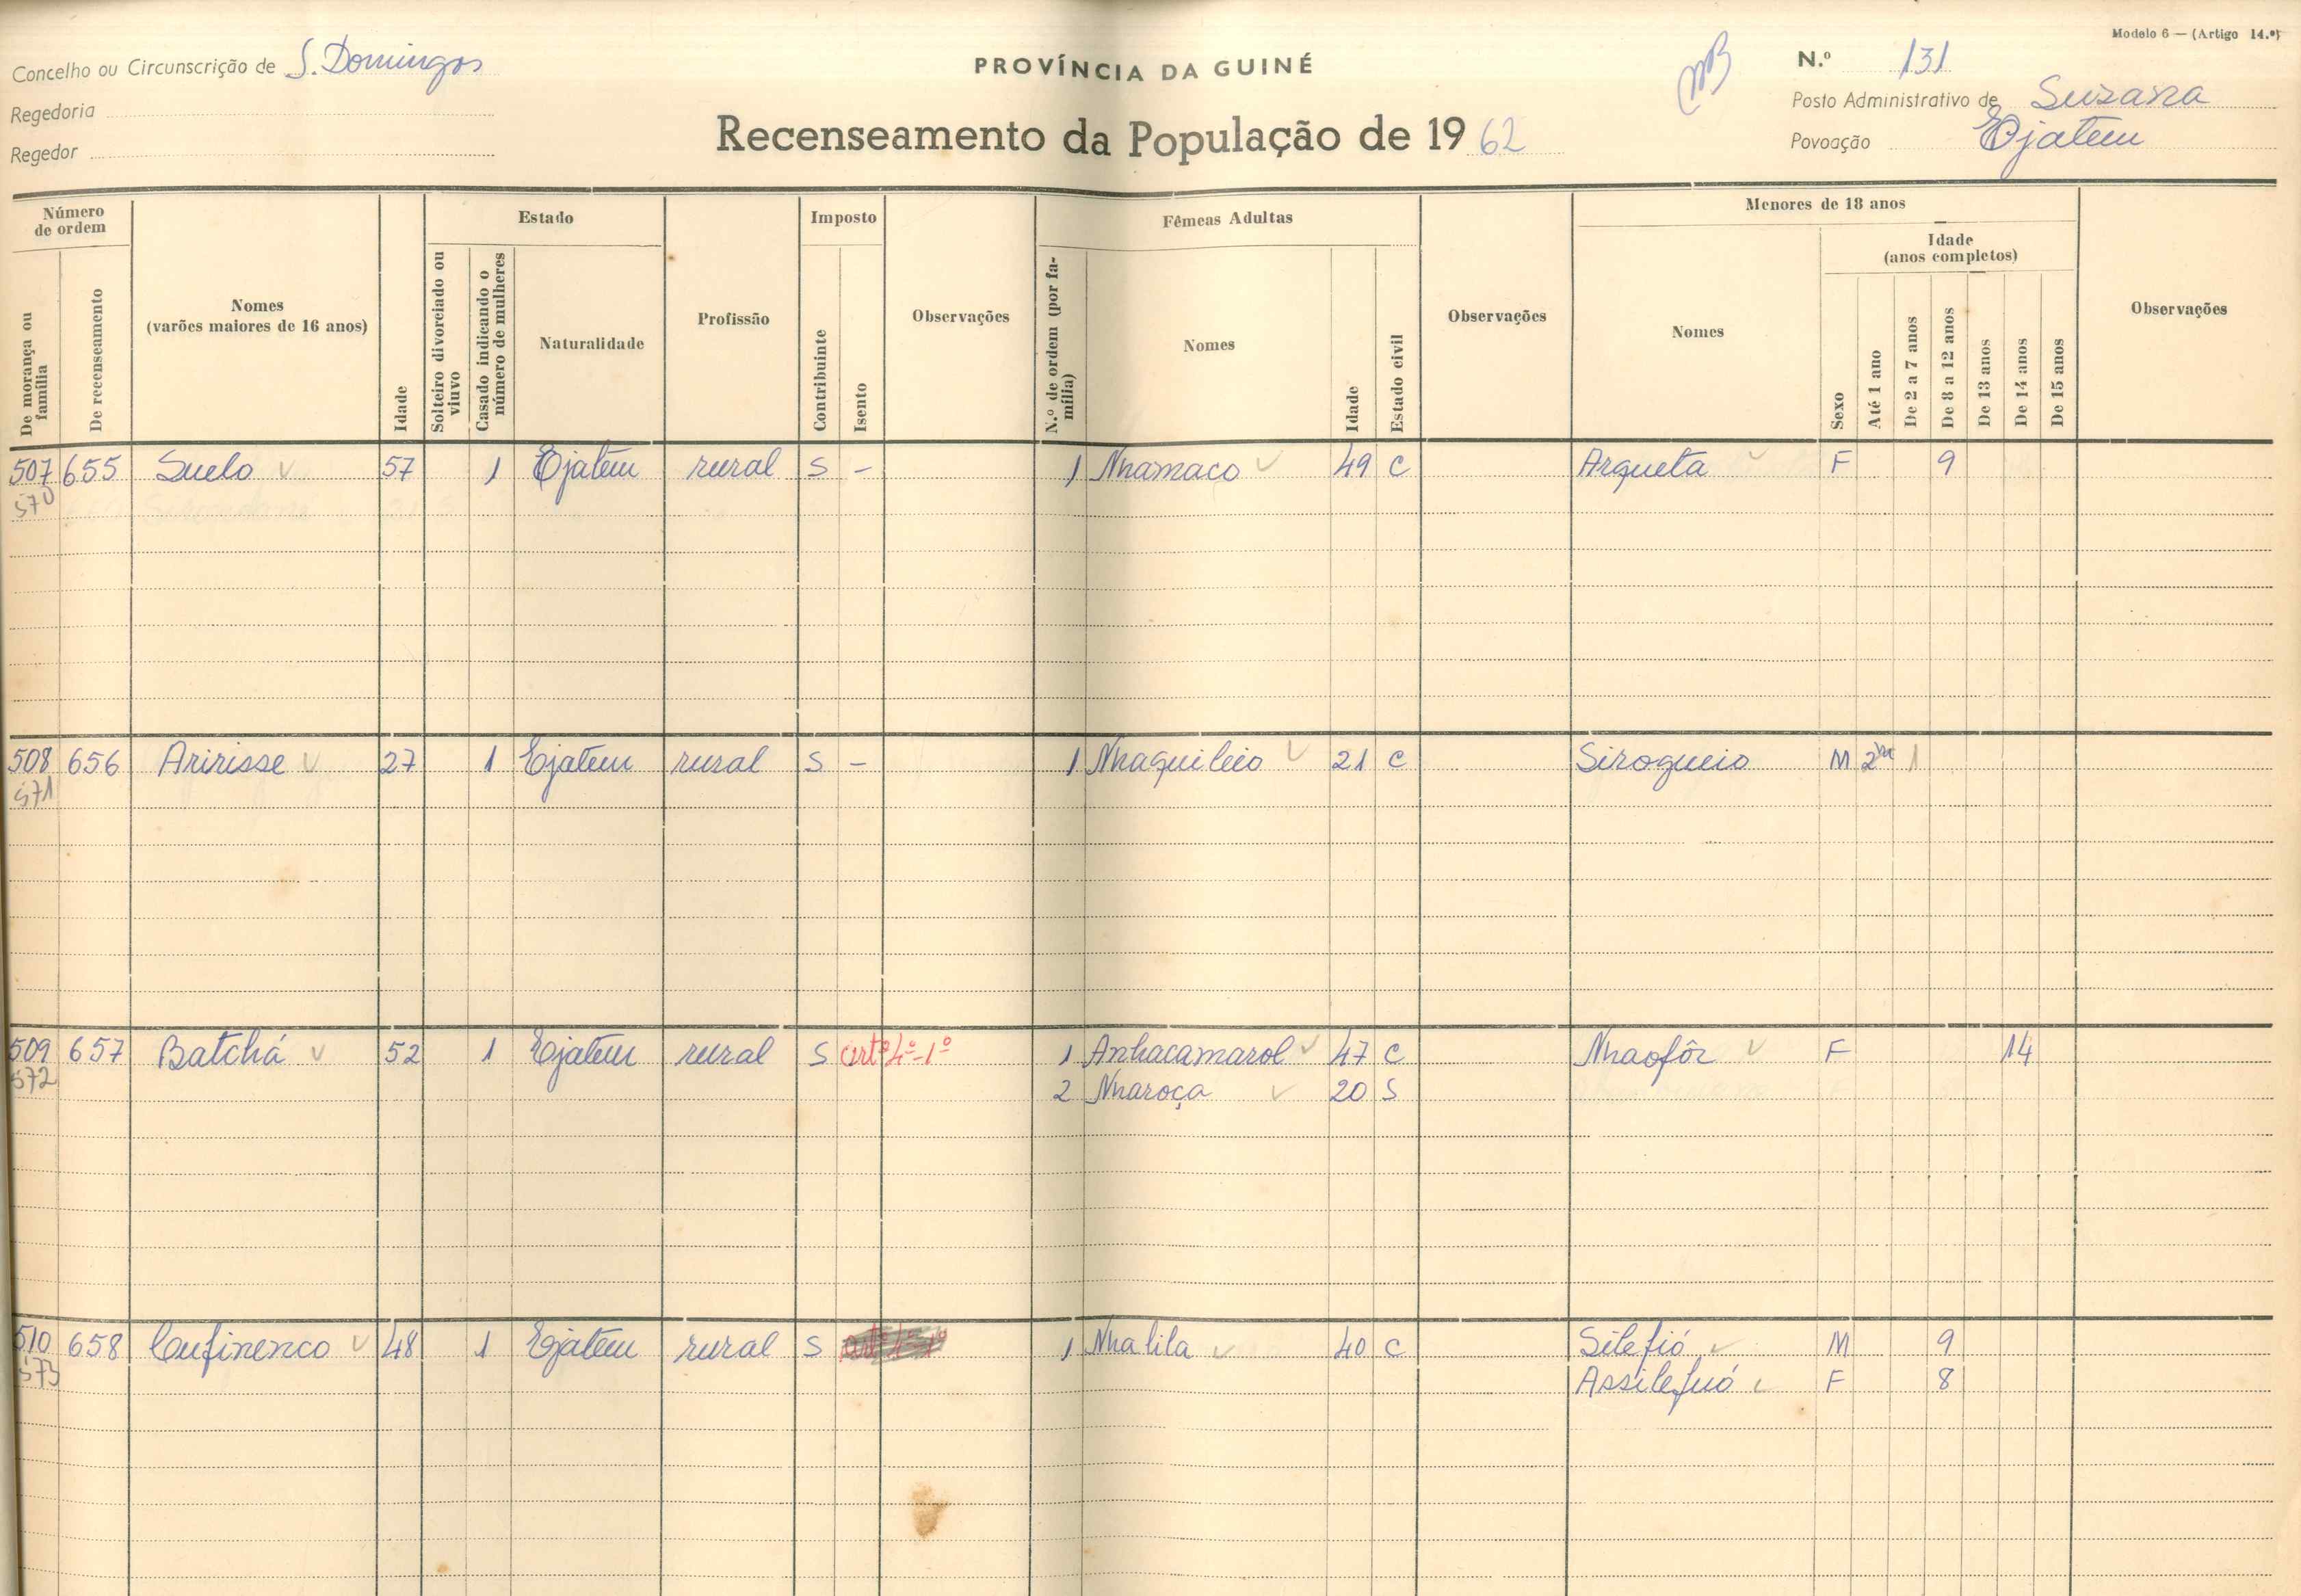 Modelo 6 — (Artigo 14.º)
Concelho ou Circunscrição de S. Domingos
PROVÍNCIA DA GUINÉ
N.º 131
Regedoria
Posto Administrativo de Suzana
Regedor
Recenseamento da População de 1962
Povoação Ejatem
Número de ordem
De morança ou família
De recenseamento
Nomes
(varões maiores de 16 anos)
Idade
Estado
Solteiro divorciado ou viuvo
Casado indicando o número de mulheres
Naturalidade
Profissão
Imposto
Contribuinte
Isento
Observações
Fêmeas Adultas
N.º de ordem (por família)
Nomes
Idade
Estado civil
Observações
Menores de 18 anos
Nomes
Sexo
Idade
(anos completos)
Até 1 ano
De 2 a 7 anos
De 8 a 12 anos
De 13 anos
De 14 anos
De 15 anos
Observações
507 655 Suelo 57 1 Ejatem rural S - 1 Nhamaco 49 C Arqueta F 9
570
508 656 Aririsse 27 1 Ejatem rural S - 1 Nhaquileio 21 C Sirogueio M 2m 1
571
509 657 Batchá 52 1 Ejatem rural S artº 4º-1º 1 Anhacamarol 47 C Nhaofôr F 14
572 2 Nharoça 20 S
510 658 Cufinenco 48 1 Ejatem rural S 1 Nhalila 40 C Silefió M 9
573 Assilefuó F 8